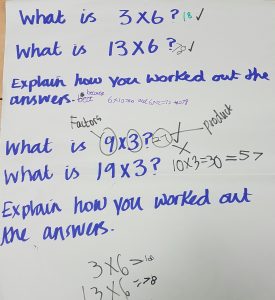 What is 3×6? 18 ✓
What is 13×6? ✓
Explain how you worked out the
answers. because 6×10=60 and
Factors product
What is 9×3? = ✓
What is 19×3? 10×3=30=57
Explain how you worked out
the answers.
3×6=18
13×6=78